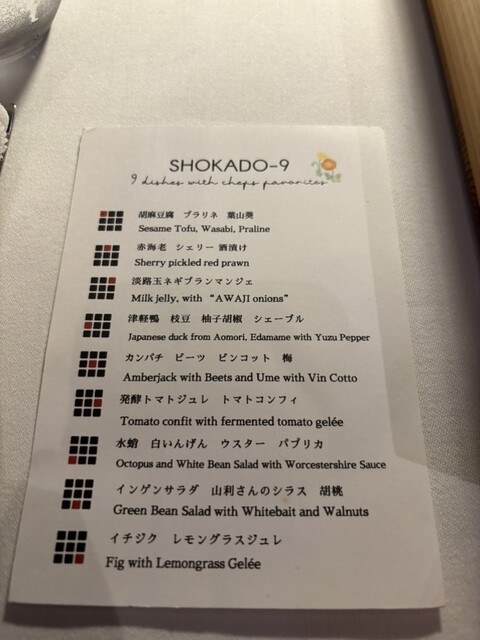 SHOKADO-9
9 dishes with chefs favorites
胡麻豆腐 プラリネ 葉山葵
Sesame Tofu, Wasabi, Praline
赤海老 シェリー酒漬け
Sherry pickled red prawn
淡路玉ネギブランマンジェ
Milk jelly, with “AWAJI onions”
津軽鴨 枝豆 柚子胡椒 シェーブル
Japanese duck from Aomori, Edamame with Yuzu Pepper
カンパチ ビーツ ビンコット 梅
Amberjack with Beets and Ume with Vin Cotto
発酵トマトジュレ トマトコンフィ
Tomato confit with fermented tomato gelée
水蛸 白いんげん ウスター パプリカ
Octopus and White Bean Salad with Worcestershire Sauce
インゲンサラダ 山利さんのシラス 胡桃
Green Bean Salad with Whitebait and Walnuts
イチジク レモングラスジュレ
Fig with Lemongrass Gelée